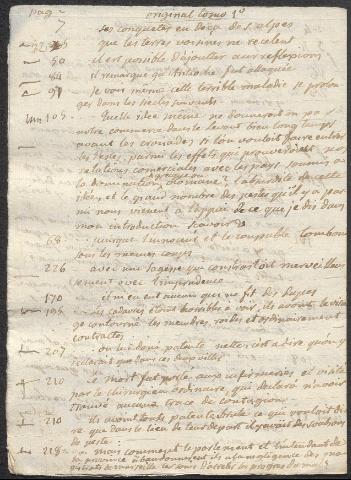 pag e original tomo 1º
7 ses conquetes en deça des alpes
que les terres voisines ne recelent
50 il est possible d'ajouter aux reflexions
84 il remarque qu'Antioche fut attaquée
91 je vous mene cette terrible maladie se prolon
ger dans les siecles suivants
105 quelle idée même ne donneront on pas
notre commerce dans le levant bien long temps
avant les croisades si l'on vouloit faire entrer
les pestes, parmi les effets que produisirent nos
relations commerciales avec les pays soumis a
la domination ottomane; l'absurdité de cette
idée, et le grand nombre des pestes qu'il y a par
mi nous vient à l'appui de ce que je dis dans
mon introduction
68 puisque l'innocent et le coupable tombent
sous les memes coups
226 avec une sagesse qui contrastoit merveilleu
sement avec l'imprudence
170 il m en eut aucun qui ne fit des
198 les cadavres étoient horribles à voir, ils avoient le visa
ge contourné les membres roides et ordinairement
contractés
207 on lui donna patente nette c'est a dire qu'on y
declaroit que dans ces deux villes
210 le mort fut porté aux infirmeries et visité
par le chirurgien ordinaire, qui declara n'avoir
trouvé aucune trace de contagion
210 ils avoient toute patente brute ce qui vouloit di
re que dans le lieu de leur depart il y avoit des soubçons
de peste
218 mais comment le parlement et l'intendant de
la province abandonnerent ils a la negligence des ma
gistrats de marseille le soin d'arreter les progres du mal